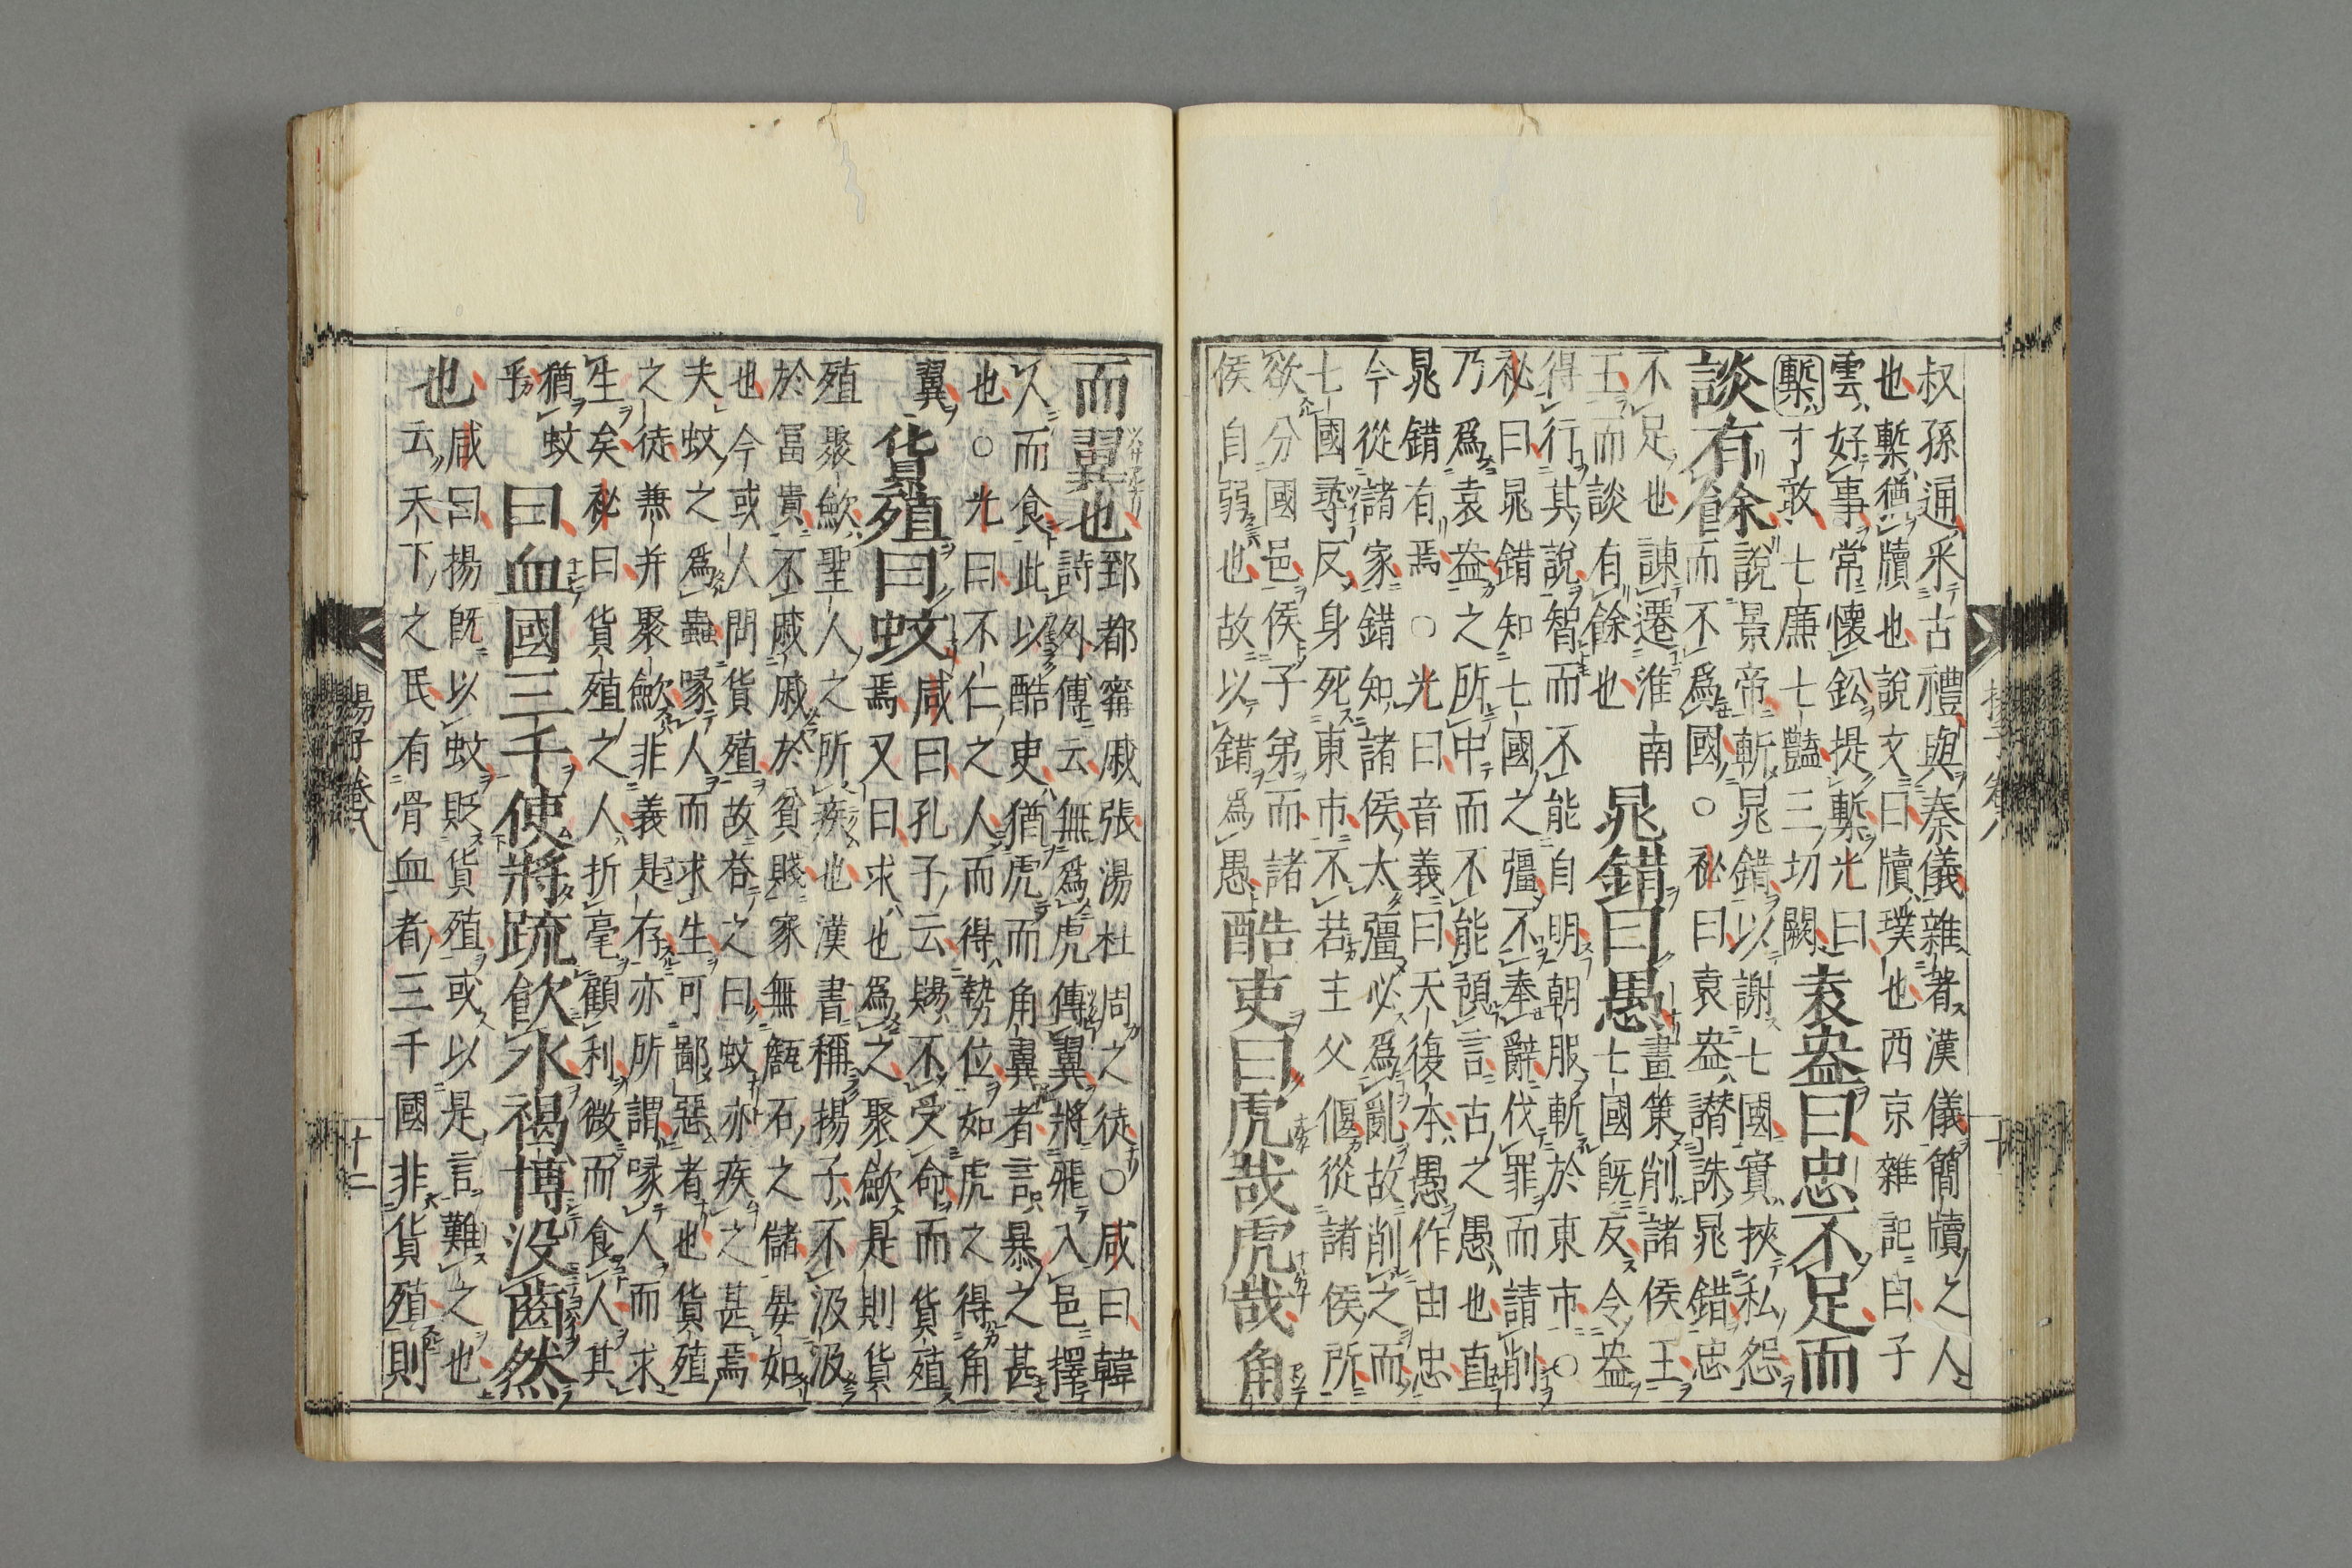 叔孫通采古禮與秦儀雜著漢儀簡牘之人
也槧猶牘也說文曰牘璞也西京雜記曰子
雲好事常懷鈆提槧光曰
槧才敢七廉七豔三切闕
袁盎曰忠不足而
談有餘
說景帝斬晁錯以謝七國實挾私怨
而不爲國○祕曰袁盎譖誅晁錯忠
不足也諫遷淮南
王而談有餘也
晁錯曰愚
畫策削諸侯王
七國旣反令盎
得行其說智而不能自明朝服斬於東市○
祕曰晁錯知七國之彊不奉辭伐罪而請削
乃爲袁盎之所中而不能預言古之愚也直
晁錯有焉○光曰音義曰天復本愚作由忠
今從諸家錯知諸侯太彊必爲亂故削之而
七國尋反身死東市不若主父偃從諸侯所
欲分國邑侯子弟而諸
侯自弱也故以錯爲愚
酷吏曰虎哉虎哉角
而翼也
郅都甯戚張湯杜周之徒○咸曰韓
詩外傳云無爲虎傳翼將飛入邑擇
人而食此以酷吏猶虎而角翼者言暴之甚
也○光曰不仁之人而得勢位如虎之得角
翼
貨殖曰蚊
咸曰孔子云賜不受命而貨殖
焉又曰求也爲之聚斂是則貨
殖聚斂聖人之所疾也漢書稱揚子不汲汲
於冨貴不戚戚於貧賤家無甔石之儲晏如
也今或人問貨殖故荅之曰蚊亦疾之甚焉
夫蚊之爲蟲喙人而求生可鄙惡者也貨殖
之徒兼并聚斂非義是存亦所謂喙人而求
生矣祕曰貨殖之人折毫顧利微而食人其
猶蚊
乎
曰血國三千使將疏飲水褐博没齒然
也
咸曰揚旣以蚊貶貨殖或以是言難之也
云天下之民有骨血者三千國非貨殖則
揚子卷八
十二